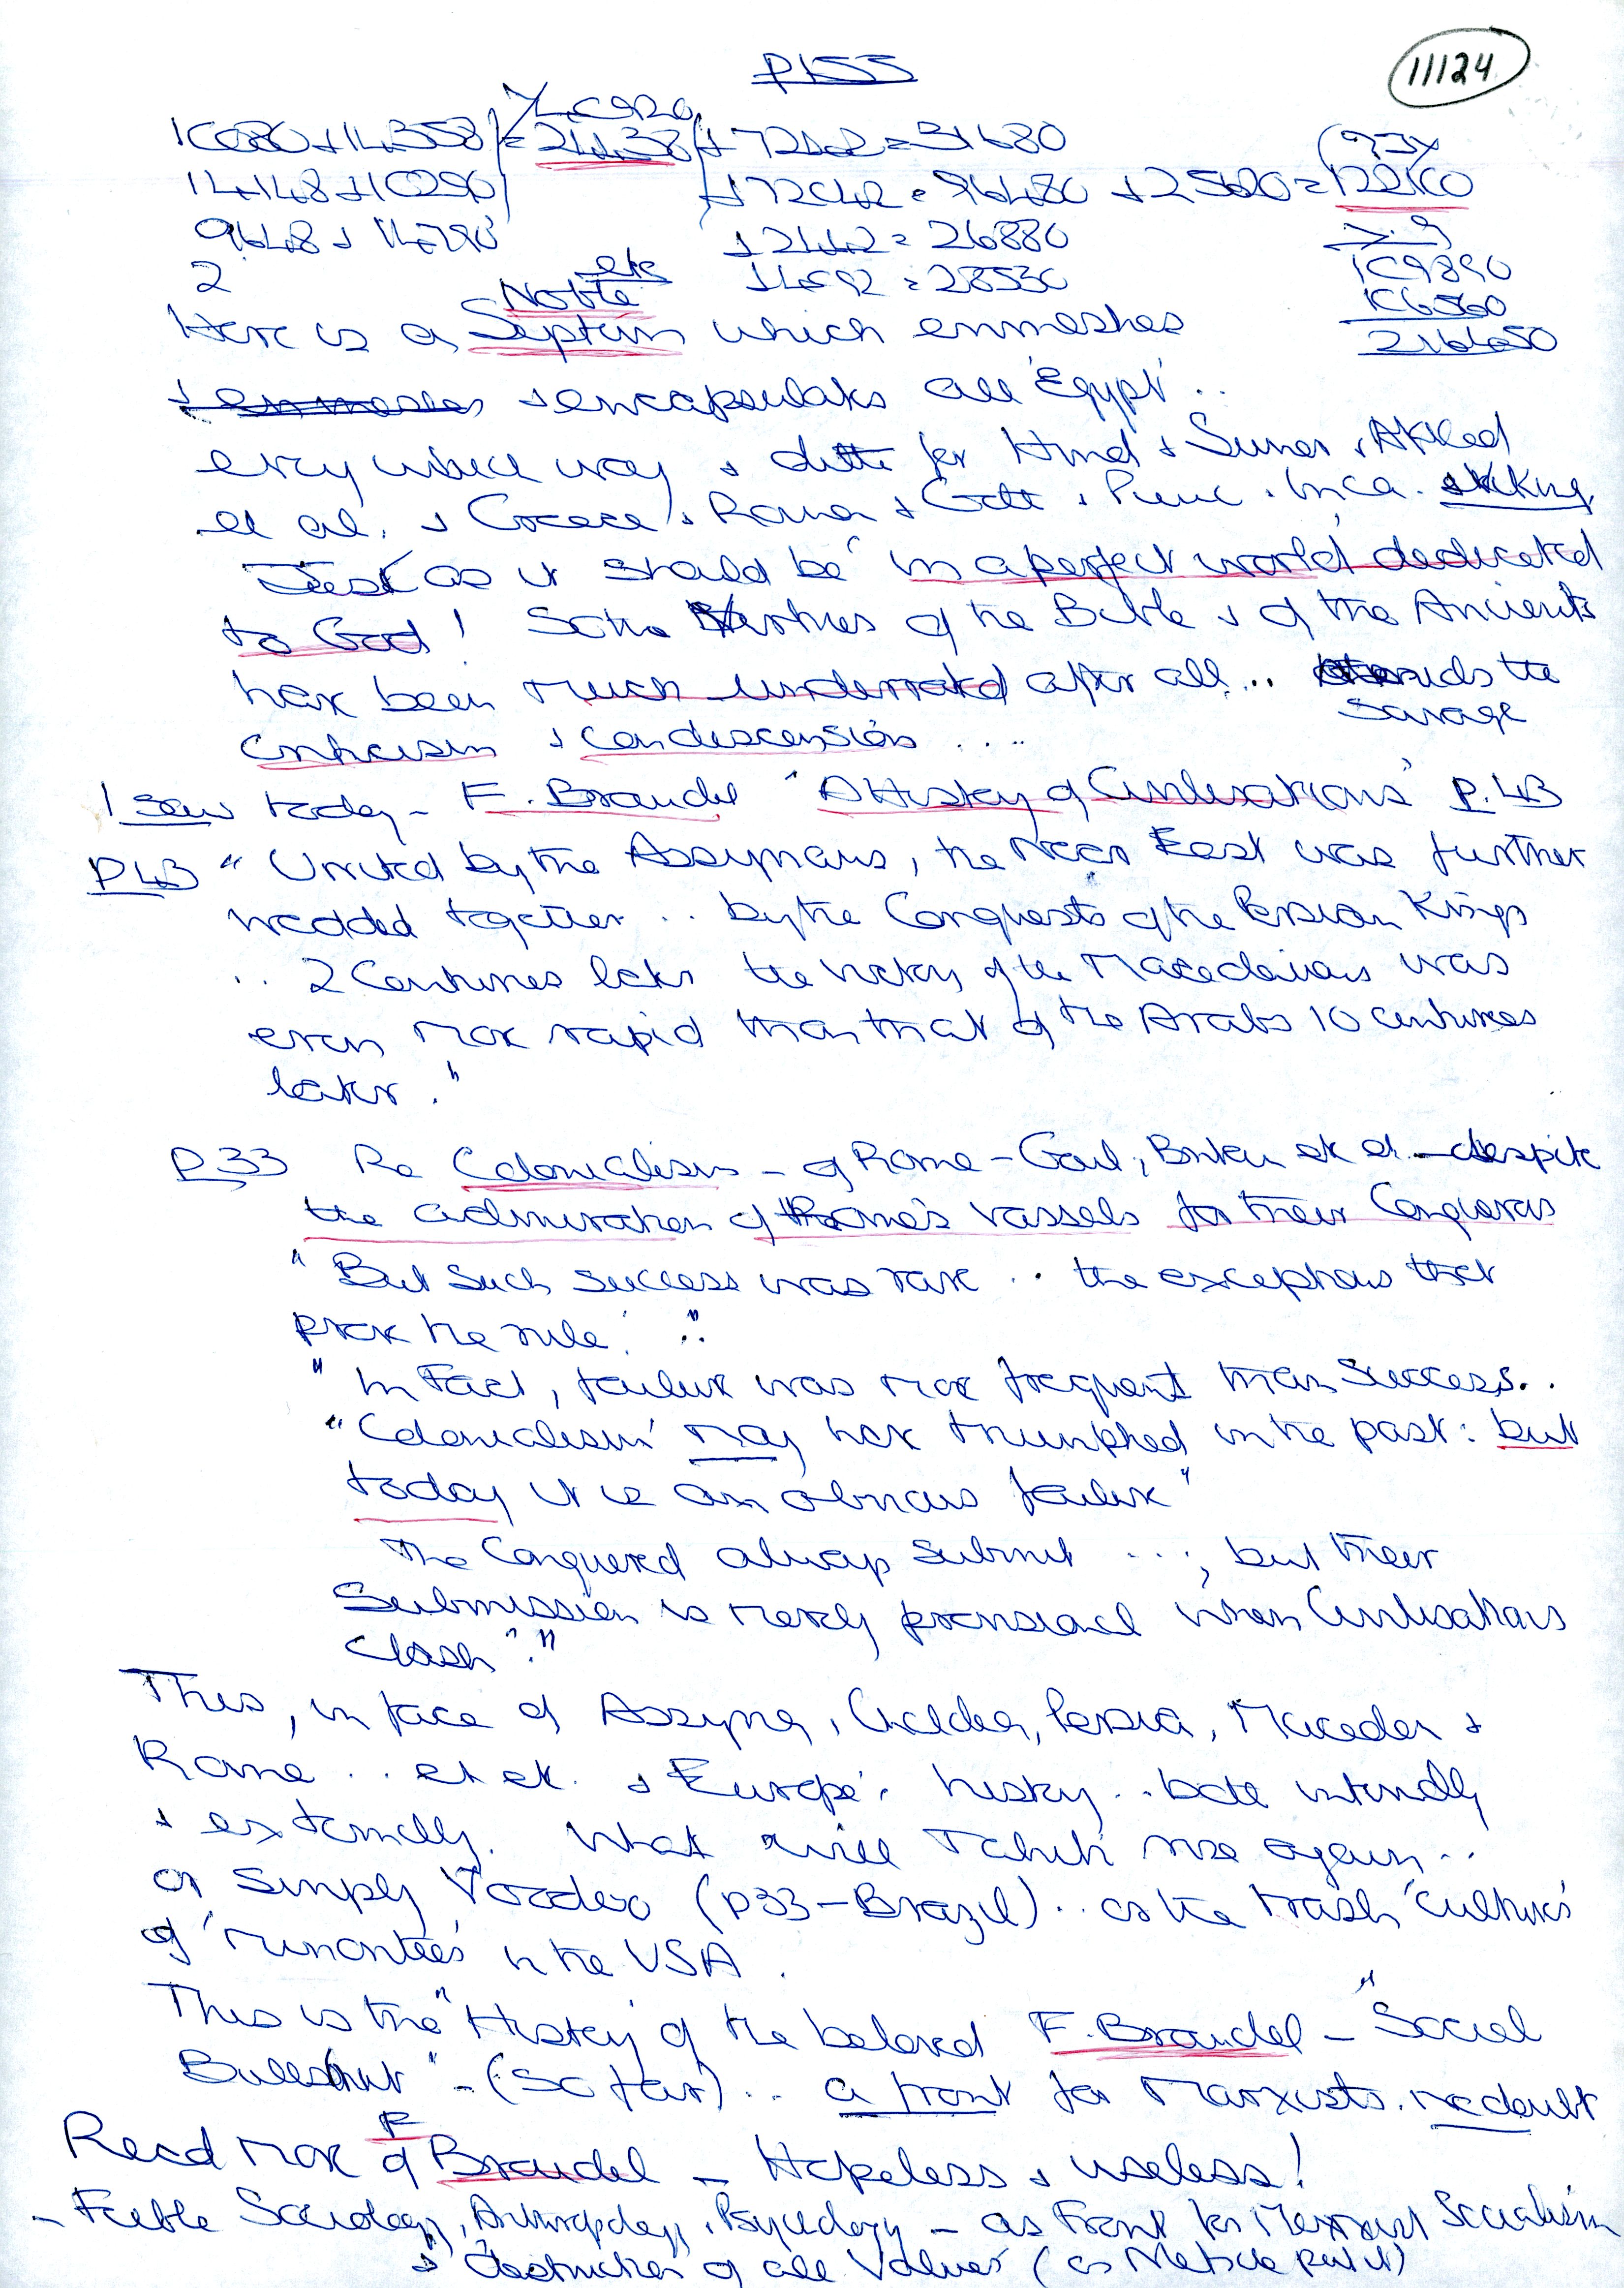 P155
11124
10080 + 14358 = 24438 + 7242 = 31680
14148 + 10290 + 72042 = 96480 + 25620 = 122100
9648 + 14790 + 2442 = 26880
2 etc + 4092 = 28530
109890
106560
216450
Noble
Here is a Septim which enmeshes
+ encapsulates all 'Egypt' ..
every which way + ditto for Hind + Sumer + Akkad
et al. + Greece + Rome + Goth + Inca. + Viking
Just as it should be in a perfect world dedicated
to God! So the of the Bible + of the Ancients
have been much underrated after all .. the
Savage
Criticism + Condescension ....
I saw today - F. Braudel 'A History of Civilisations' P.43
P43 " United by the Assyrians, the Near East was further
wedded together .. by the Conquests of the Persian Kings
.. 2 Centuries later the victory of the Macedonians was
even more rapid than that of the Arabs 10 centuries
later."
P33 Re Colonialism - of Rome - Gaul, Britain et al - despite
the admiration of Rome's vassels for their Conquerors
" But such success was rare .. the exceptions that
prove the rule.'"
" In Fact, failure was more frequent than Success..
"'Colonialism' may have triumphed in the past: but
today it is an obvious failure"
The Conquered always submit ...; but their
Submission is merely provisional when Civilisations
Clash"."
This, in face of Assyria, Chaldea, Persia, Macedon +
Rome .. et al. + Europe's history .. both internally
+ externally. What will Tahiti rise again ..
or simply Voodoo (P33 - Brazil) .. as the trash 'cultures'
of 'minorities' in the USA.
This is the "History" of the beloved F. Braudel - "Social
Bullshit" - (so far) .. a front for Marxists. no doubt
Read more of F Braudel - Hopeless + useless!
- Feeble Sociology, Anthropology, Psychology - as Front for Marxist Socialism
+ 'Destruction of all Values' (as Nietzsche put it)